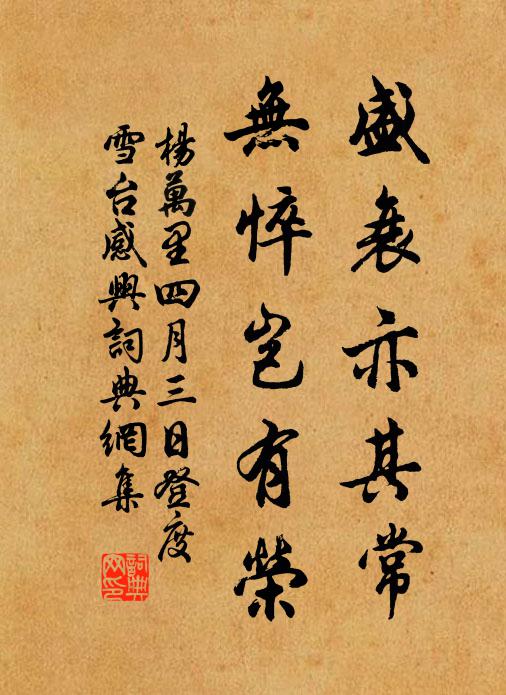 盛衰亦其常
無悴豈有榮
楊萬里四月三日登度
雪台感興詞典網集
詞典网印